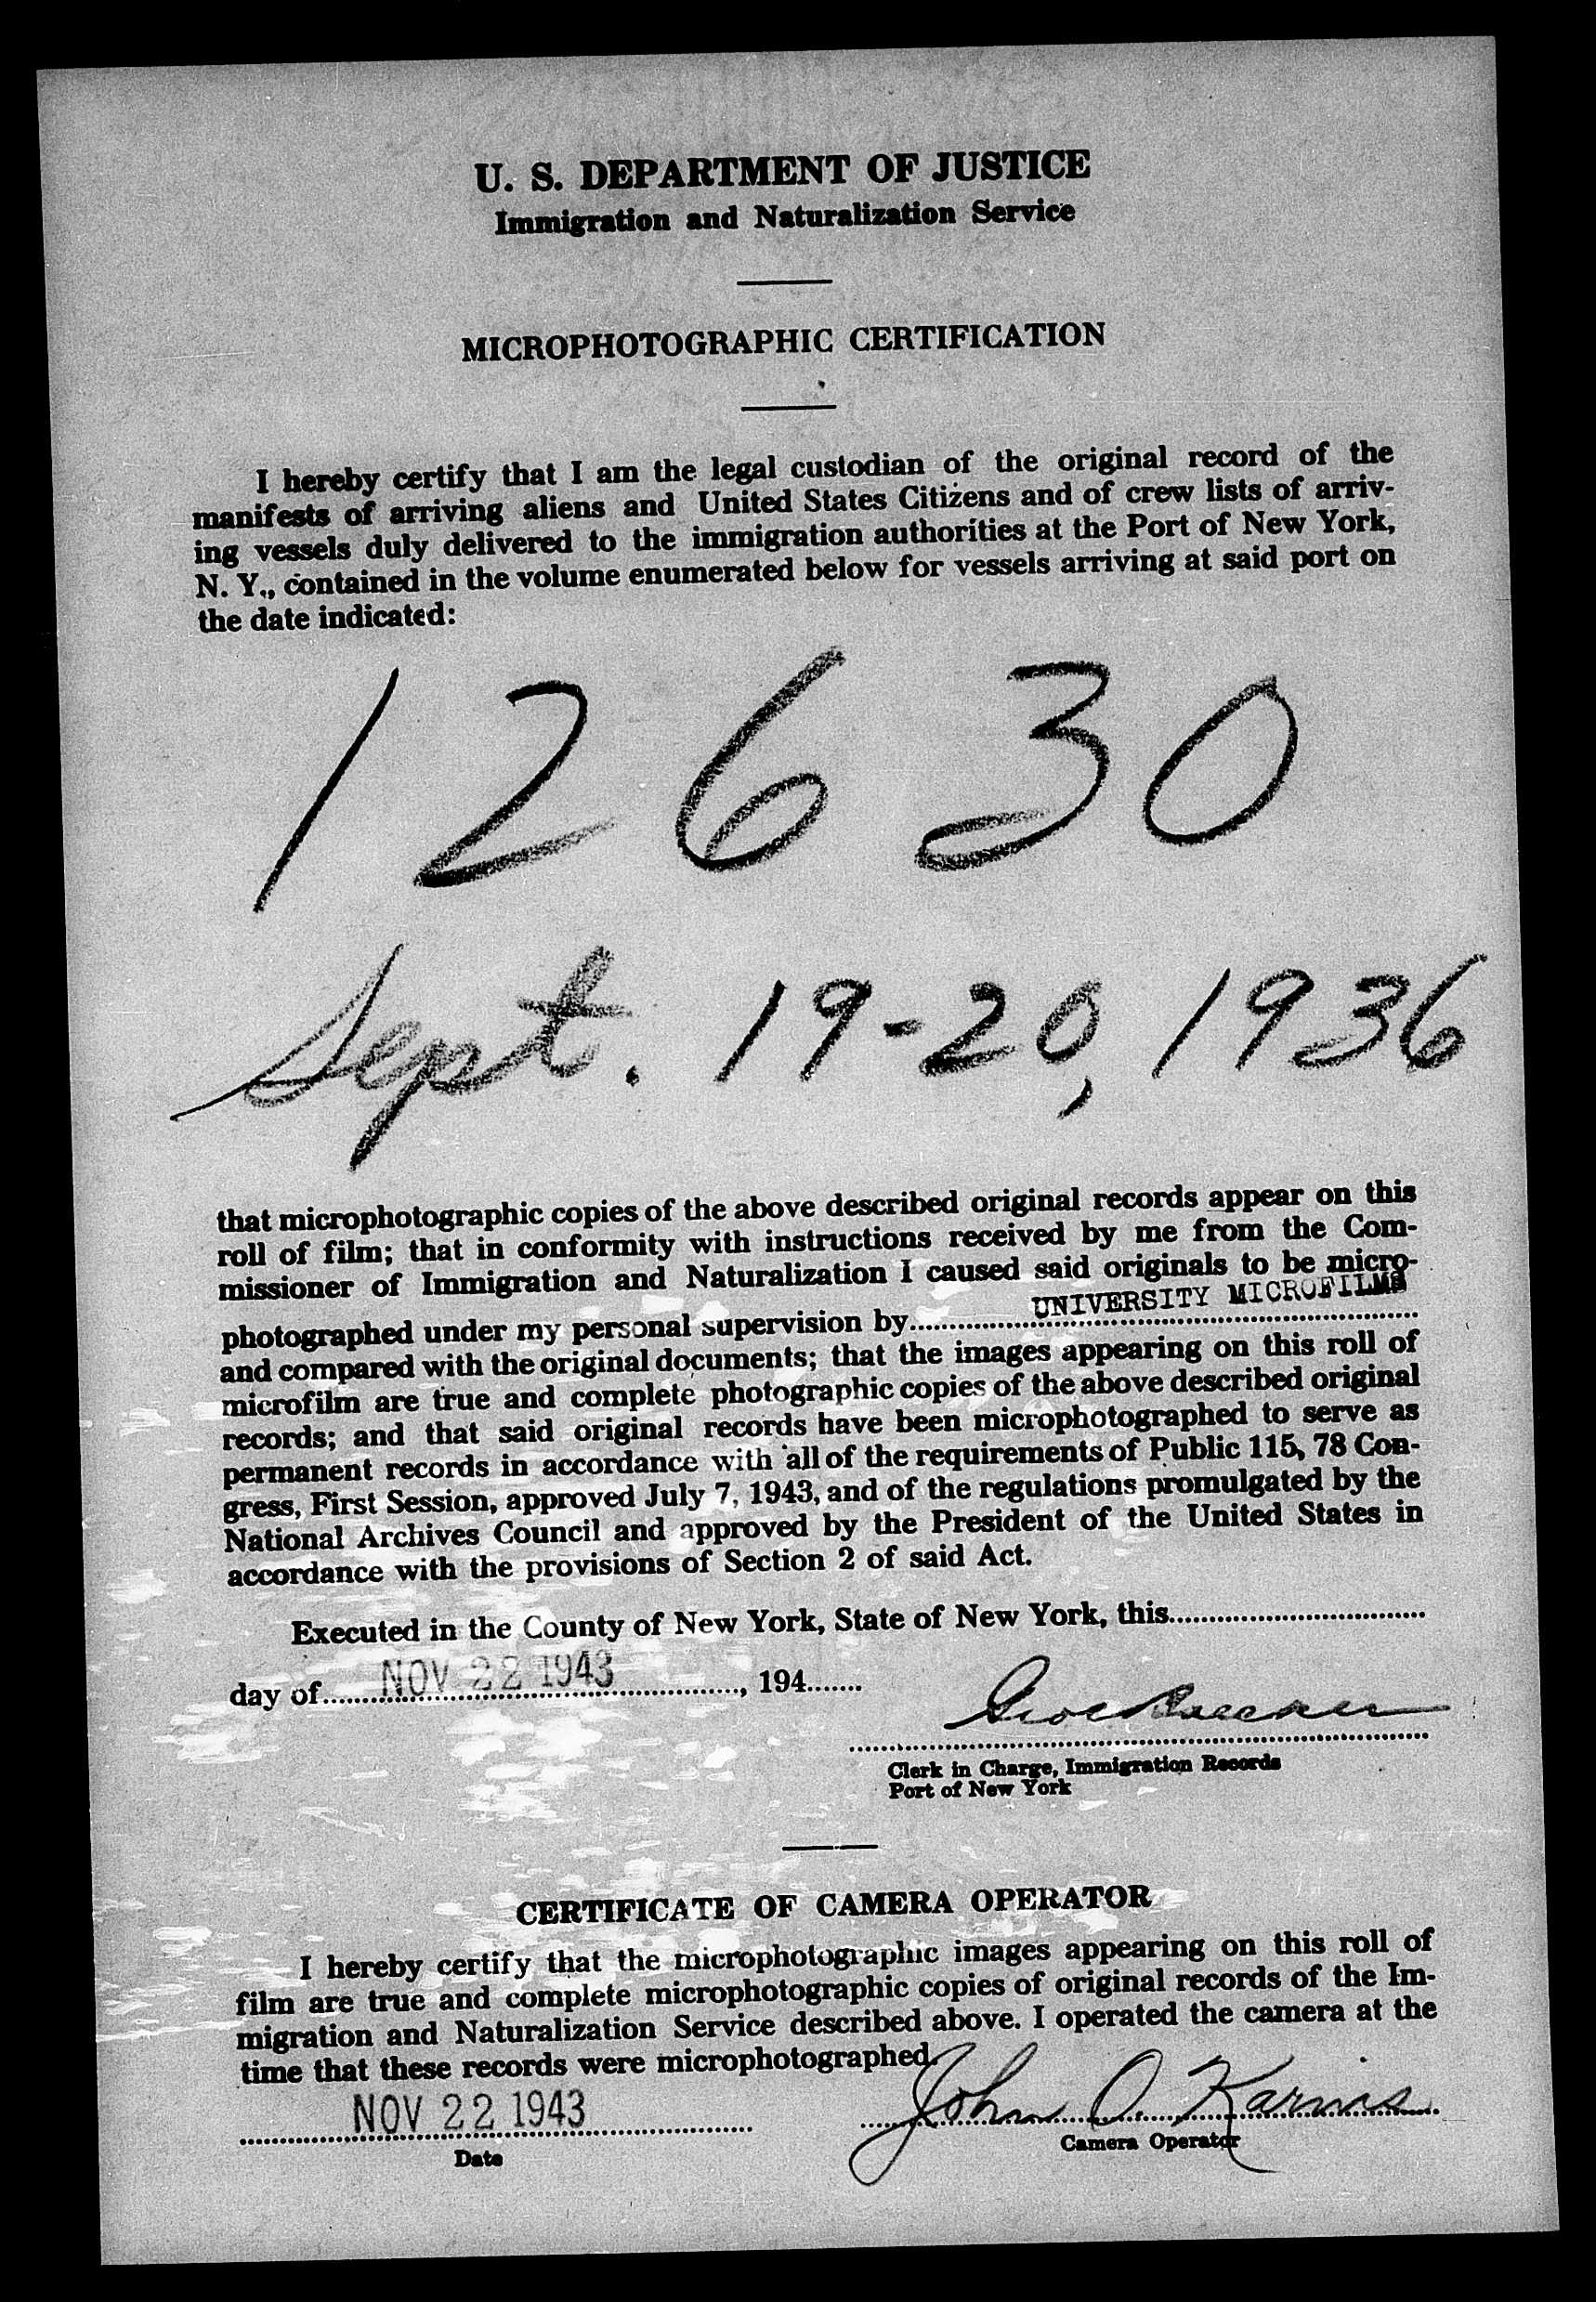 U. S. DEPARTMENT OF JUSTICE
Immigration and Naturalization Service
MICROPHOTOGRAPHIC CERTIFICATION
I hereby certify that I am the legal custodian of the original record of the
manifests of arriving aliens and United States Citizens and of crew lists of arriv-
ing vessels duly delivered to the immigration authorities at the Port of New York,
N. Y., contained in the volume enumerated below for vessels arriving at said port on
the date indicated:
12630
Sept. 19-20, 1936
that microphotographic copies of the above described original records appear on this
roll of film; that in conformity with instructions received by me from the Com-
missioner of Immigration and Naturalization I caused said originals to be micro-
photographed under my personal supervision by UNIVERSITY MICROFILMS
and compared with the original documents; that the images appearing on this roll of
microfilm are true and complete photographic copies of the above described original
records; and that said original records have been microphotographed to serve as
permanent records in accordance with all of the requirements of Public 115, 78 Con-
gress, First Session, approved July 7, 1943, and of the regulations promulgated by the
National Archives Council and approved by the President of the United States in
accordance with the provisions of Section 2 of said Act.
Executed in the County of New York, State of New York, this
day of NOV 22 1943, 194
Clerk in Charge, Immigration Records
Port of New York
CERTIFICATE OF CAMERA OPERATOR
I hereby certify that the microphotographic images appearing on this roll of
film are true and complete microphotographic copies of original records of the Im-
migration and Naturalization Service described above. I operated the camera at the
time that these records were microphotographed.
NOV 22 1943 John O. Karnis
Date Camera Operator